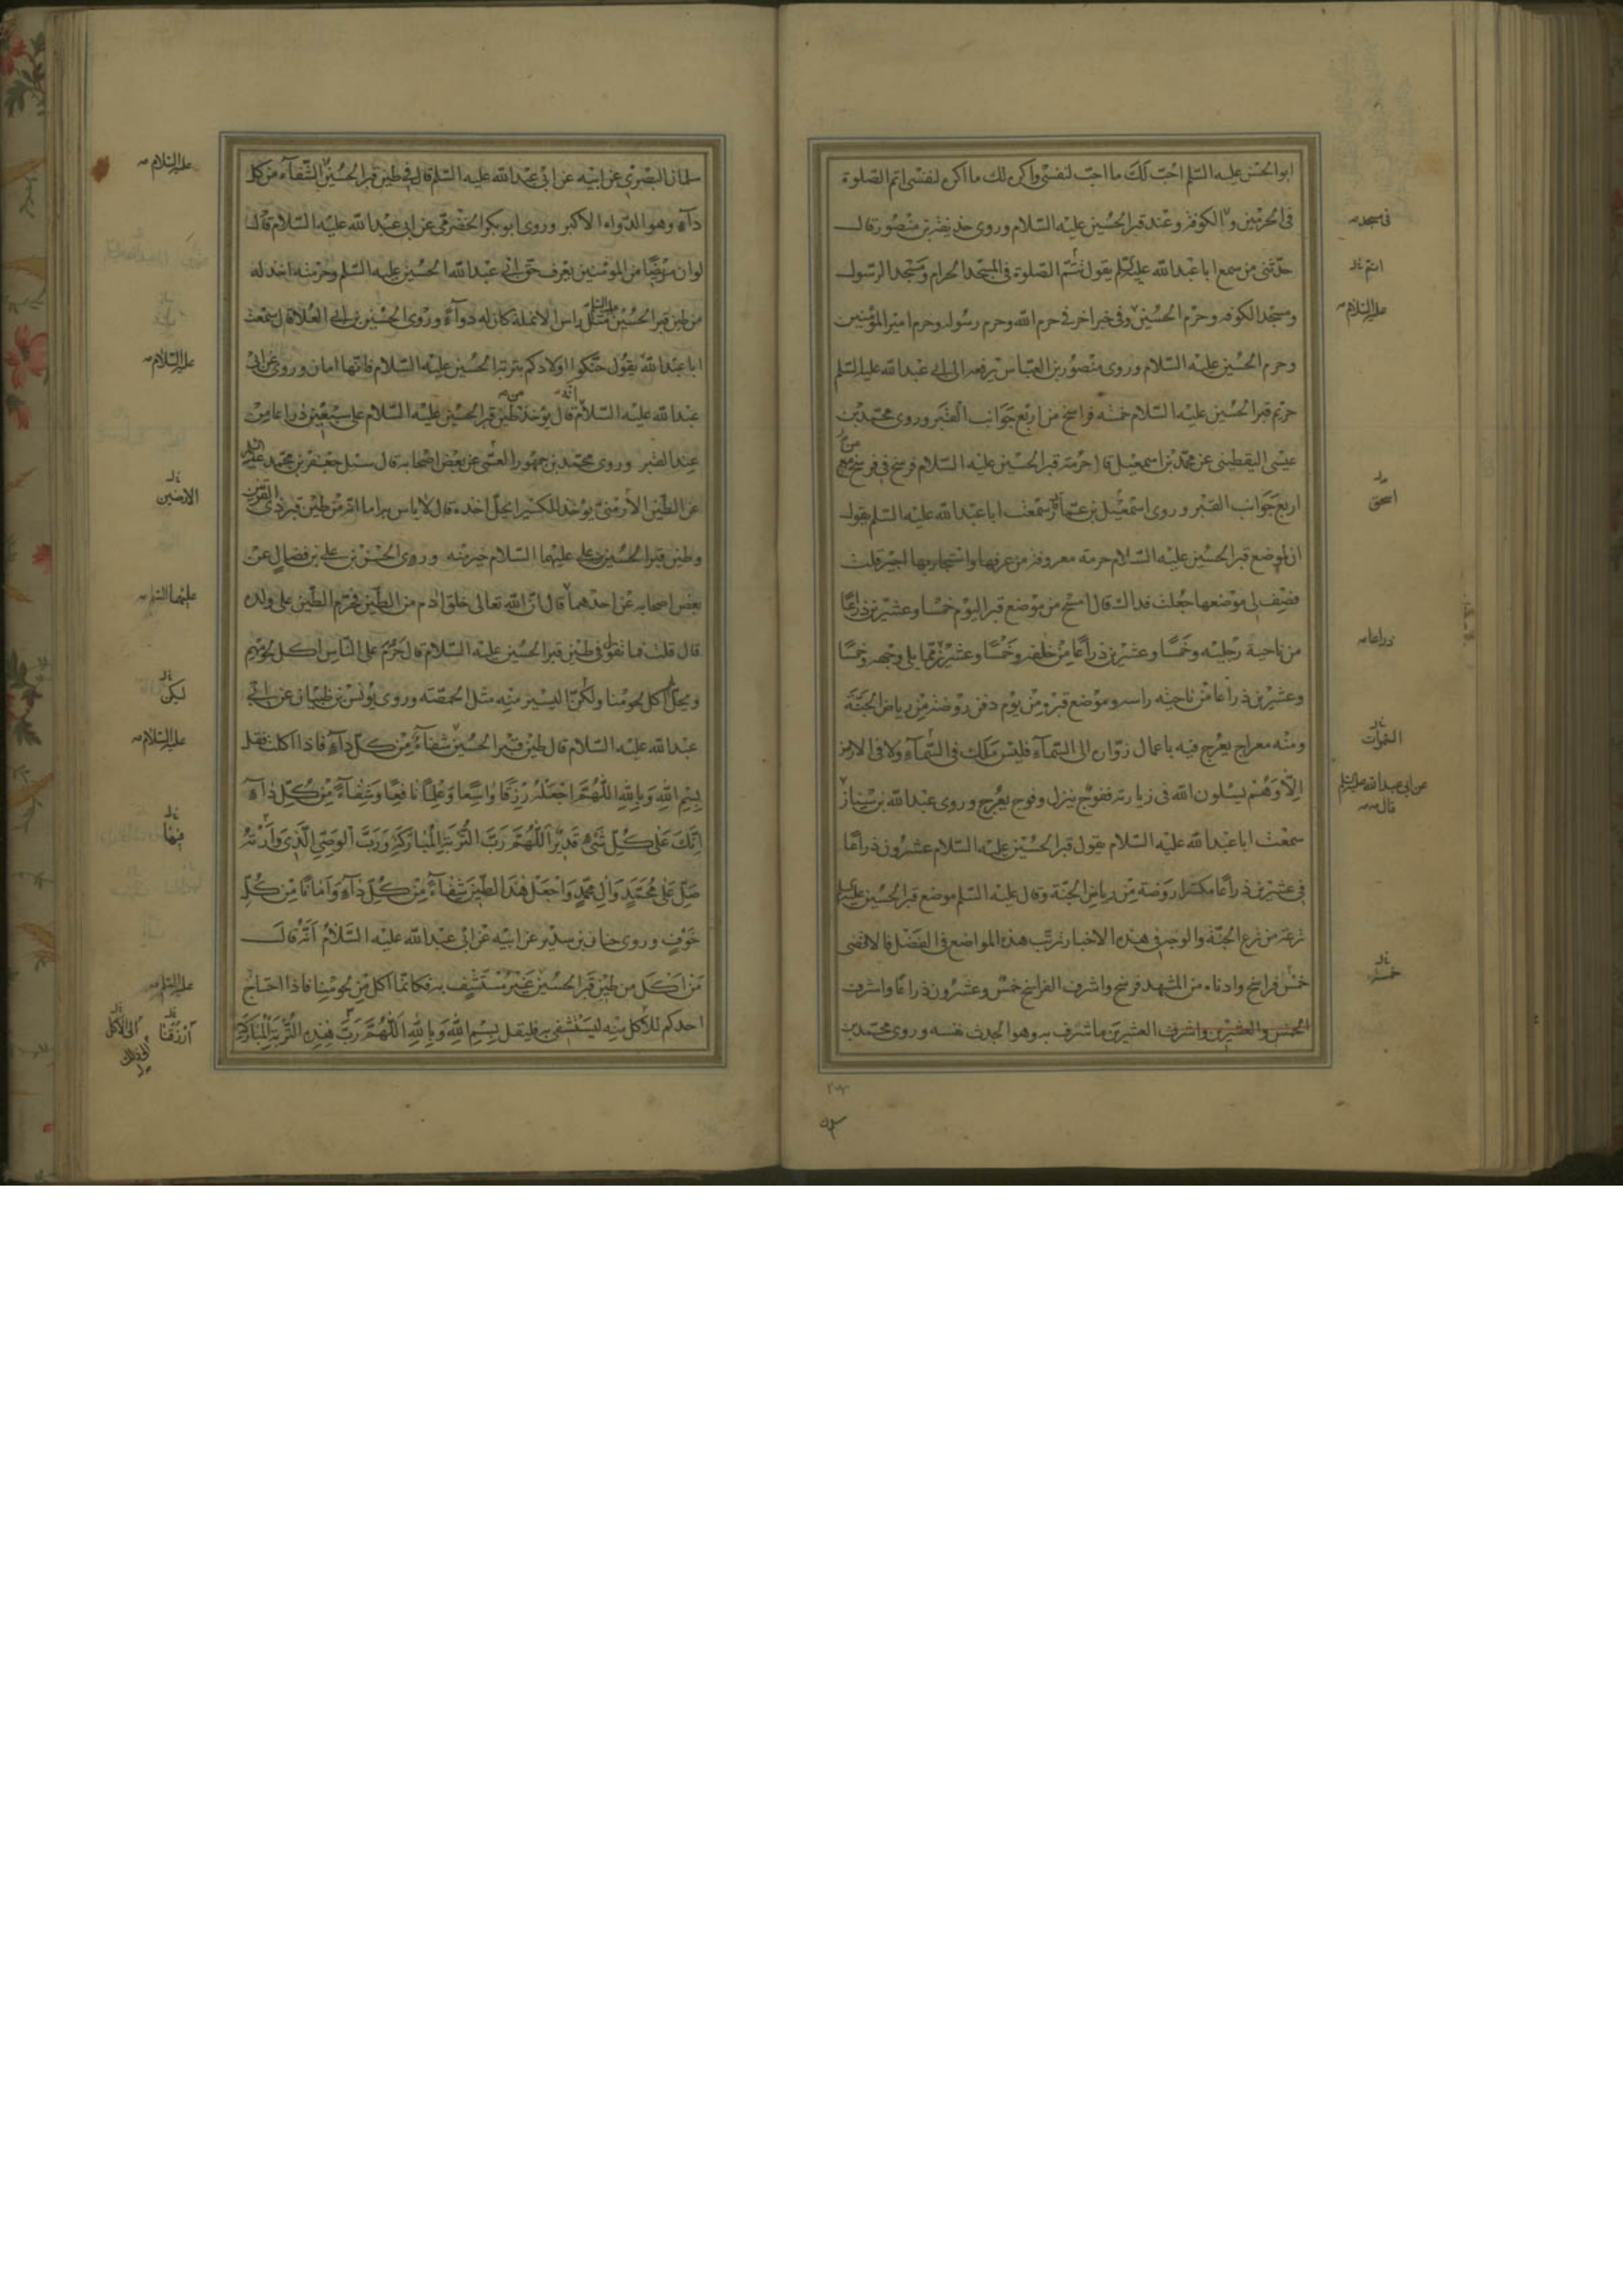 ابو الحسن عليه السلم احب لك ما احب لنفسى واكره لك ما اكره لنفسى اتم الصلوة
فى الحرمين وبالكوفة وعند قبر الحسين عليه السلام وروى حذيفة بن منصور قال
حدثنى من سمع ابا عبد الله عليه السلم يقول تتم الصلوة فى المسجد الحرام ومسجد الرسول
ومسجد الكوفه وحرم الحسين وفى خبر اخر فى حرم الله وحرم رسوله وحرم امير المؤمنين
وحرم الحسين عليه السلام وروى منصور بن العباس يرفعه الى ابى عبد الله عليه السلم
حريم قبر الحسين عليه السلام خمسه فراسخ من اربع جوانب القبر وروى محمد بن
عيسى اليقطينى عن محمد بن اسمعيل قال حرمة قبر الحسين عليه السلام فرسخ فى فرسخ من
اربع جوانب القبر وروى اسمعيل بن عمار سمعت ابا عبد الله عليه السلم يقول
ان لموضع قبر الحسين عليه السلام حرمة معروفة من عرفها واستجار بها اجير قلت
فصف لى موضعها جعلت فداك قال امسح من موضع قبر اليوم خمسا وعشرين ذراعا
من ناحية رجليه وخمسا وعشرين ذراعا من خلفه وخمسا وعشرين مما يلى وجهه وخمسا
وعشرين ذراعا من ناحيه راسه وموضع قبره من يوم دفن روضة من رياض الجنة
ومنه معراج يعرج فيه باعمال زواره الى السمآء فليس ملك فى السمآء ولا فى الارض
الا وهم يسئلون الله فى زيارته ففوج ينزل وفوج يعرج وروى عبد الله بن سنان
سمعت ابا عبد الله عليه السلام يقول قبر الحسين عليه السلام عشرون ذراعا
فى عشرين ذراعا مكسرا روضة من رياض الجنة وقال عليه السلم موضع قبر الحسين عليه السلم
ترعة من ترع الجنة والوجه فى هذه الاخبار ترتب هذه المواضع فى الفضل فالاقصى
خمس فراسخ وادناه من المشهد فرسخ واشرف الفراسخ خمس وعشرون ذراعا واشرف
الخمس والعشرين واشرف العشرين ما شرف به وهو الجدث نفسه وروى محمد بن
فى مسجد
اتم
عليه السلام
اسحق
ذراعا
السموات
عن ابى عبد الله عليه السلم
قال
خمسة
سليمان البصرى عن ابيه عن ابى عبد الله عليه السلم قال فى طين قبر الحسين الشفآء من كل
دآء وهو الدواء الاكبر وروى ابو بكر الحضرمى عن ابى عبد الله عليه السلام قال
لو ان مريضا من المؤمنين يعرف حق ابى عبد الله الحسين عليه السلم وحرمته اخذ له
من طين قبر الحسين مثل راس الانملة كان له دوآء وروى الحسين بن ابى العلا قال سمعت
ابا عبد الله يقول حنكوا اولادكم بتربة الحسين عليه السلام فانها امان وروى عن ابى
عبد الله عليه السلام انه قال يؤخذ طين قبر الحسين عليه السلام على سبعين ذراعا من
عند القبر وروى محمد بن جمهور العمى عن بعض اصحابه قال سئل جعفر بن محمد عليه السلم
عن الطين الأرمنى يؤخذ للكسير ايحل اخذه قال لا باس به اما انه من طين قبر ذى القرنين
وطين قبر الحسين بن على عليهما السلام خير منه وروى الحسن بن على بن فضال عن
بعض اصحابه عن احدهما قال ان الله تعالى خلق ادم من الطين فحرم الطين على ولده
قال قلت فما تقول فى طين قبر الحسين عليه السلام قال يحرم على الناس اكل لحومهم
ويحل اكل لحومنا ولكن اليسير منه مثل الحمصة وروى يونس بن ظبيان عن ابى
عبد الله عليه السلام قال طين قبر الحسين شفآء من كل دآء فاذا اكلت فقل
بسم الله وبالله اللهم اجعله رزقا واسعا وعلما نافعا وشفآء من كل دآء
انك على كل شىء قدير اللهم رب التربة المباركة ورب الوصى الذى وارته
صل على محمد وال محمد واجعل هذا الطين شفآء من كل دآء وامانا من كل
خوف وروى حنان بن سدير عن ابيه عن ابى عبد الله عليه السلام انه قال
من اكل من طين قبر الحسين غير مستشف به فكانما اكل من لحومنا فاذا احتاج
احدكم للأكل منه ليستشفى به فليقل بسم الله وبالله اللهم رب هذه التربة المباركة
عليه السلام
عليه السلام
الارمنين
عليهما السلم
لكن
عليه السلام
فيها
عليه السلم
ارزقنا
الى الاكل